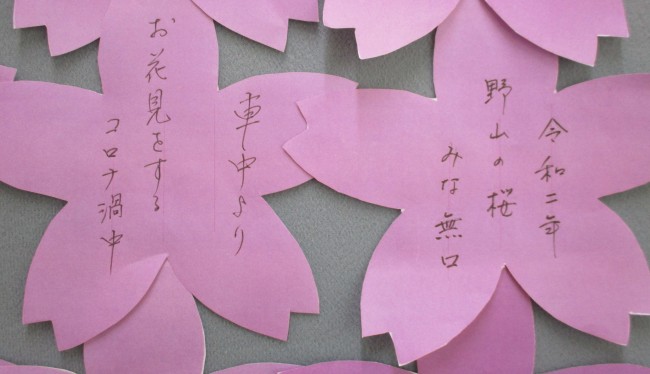 令和二年
野山の桜
みな無口
車中より
お花見をする
コロナ渦中